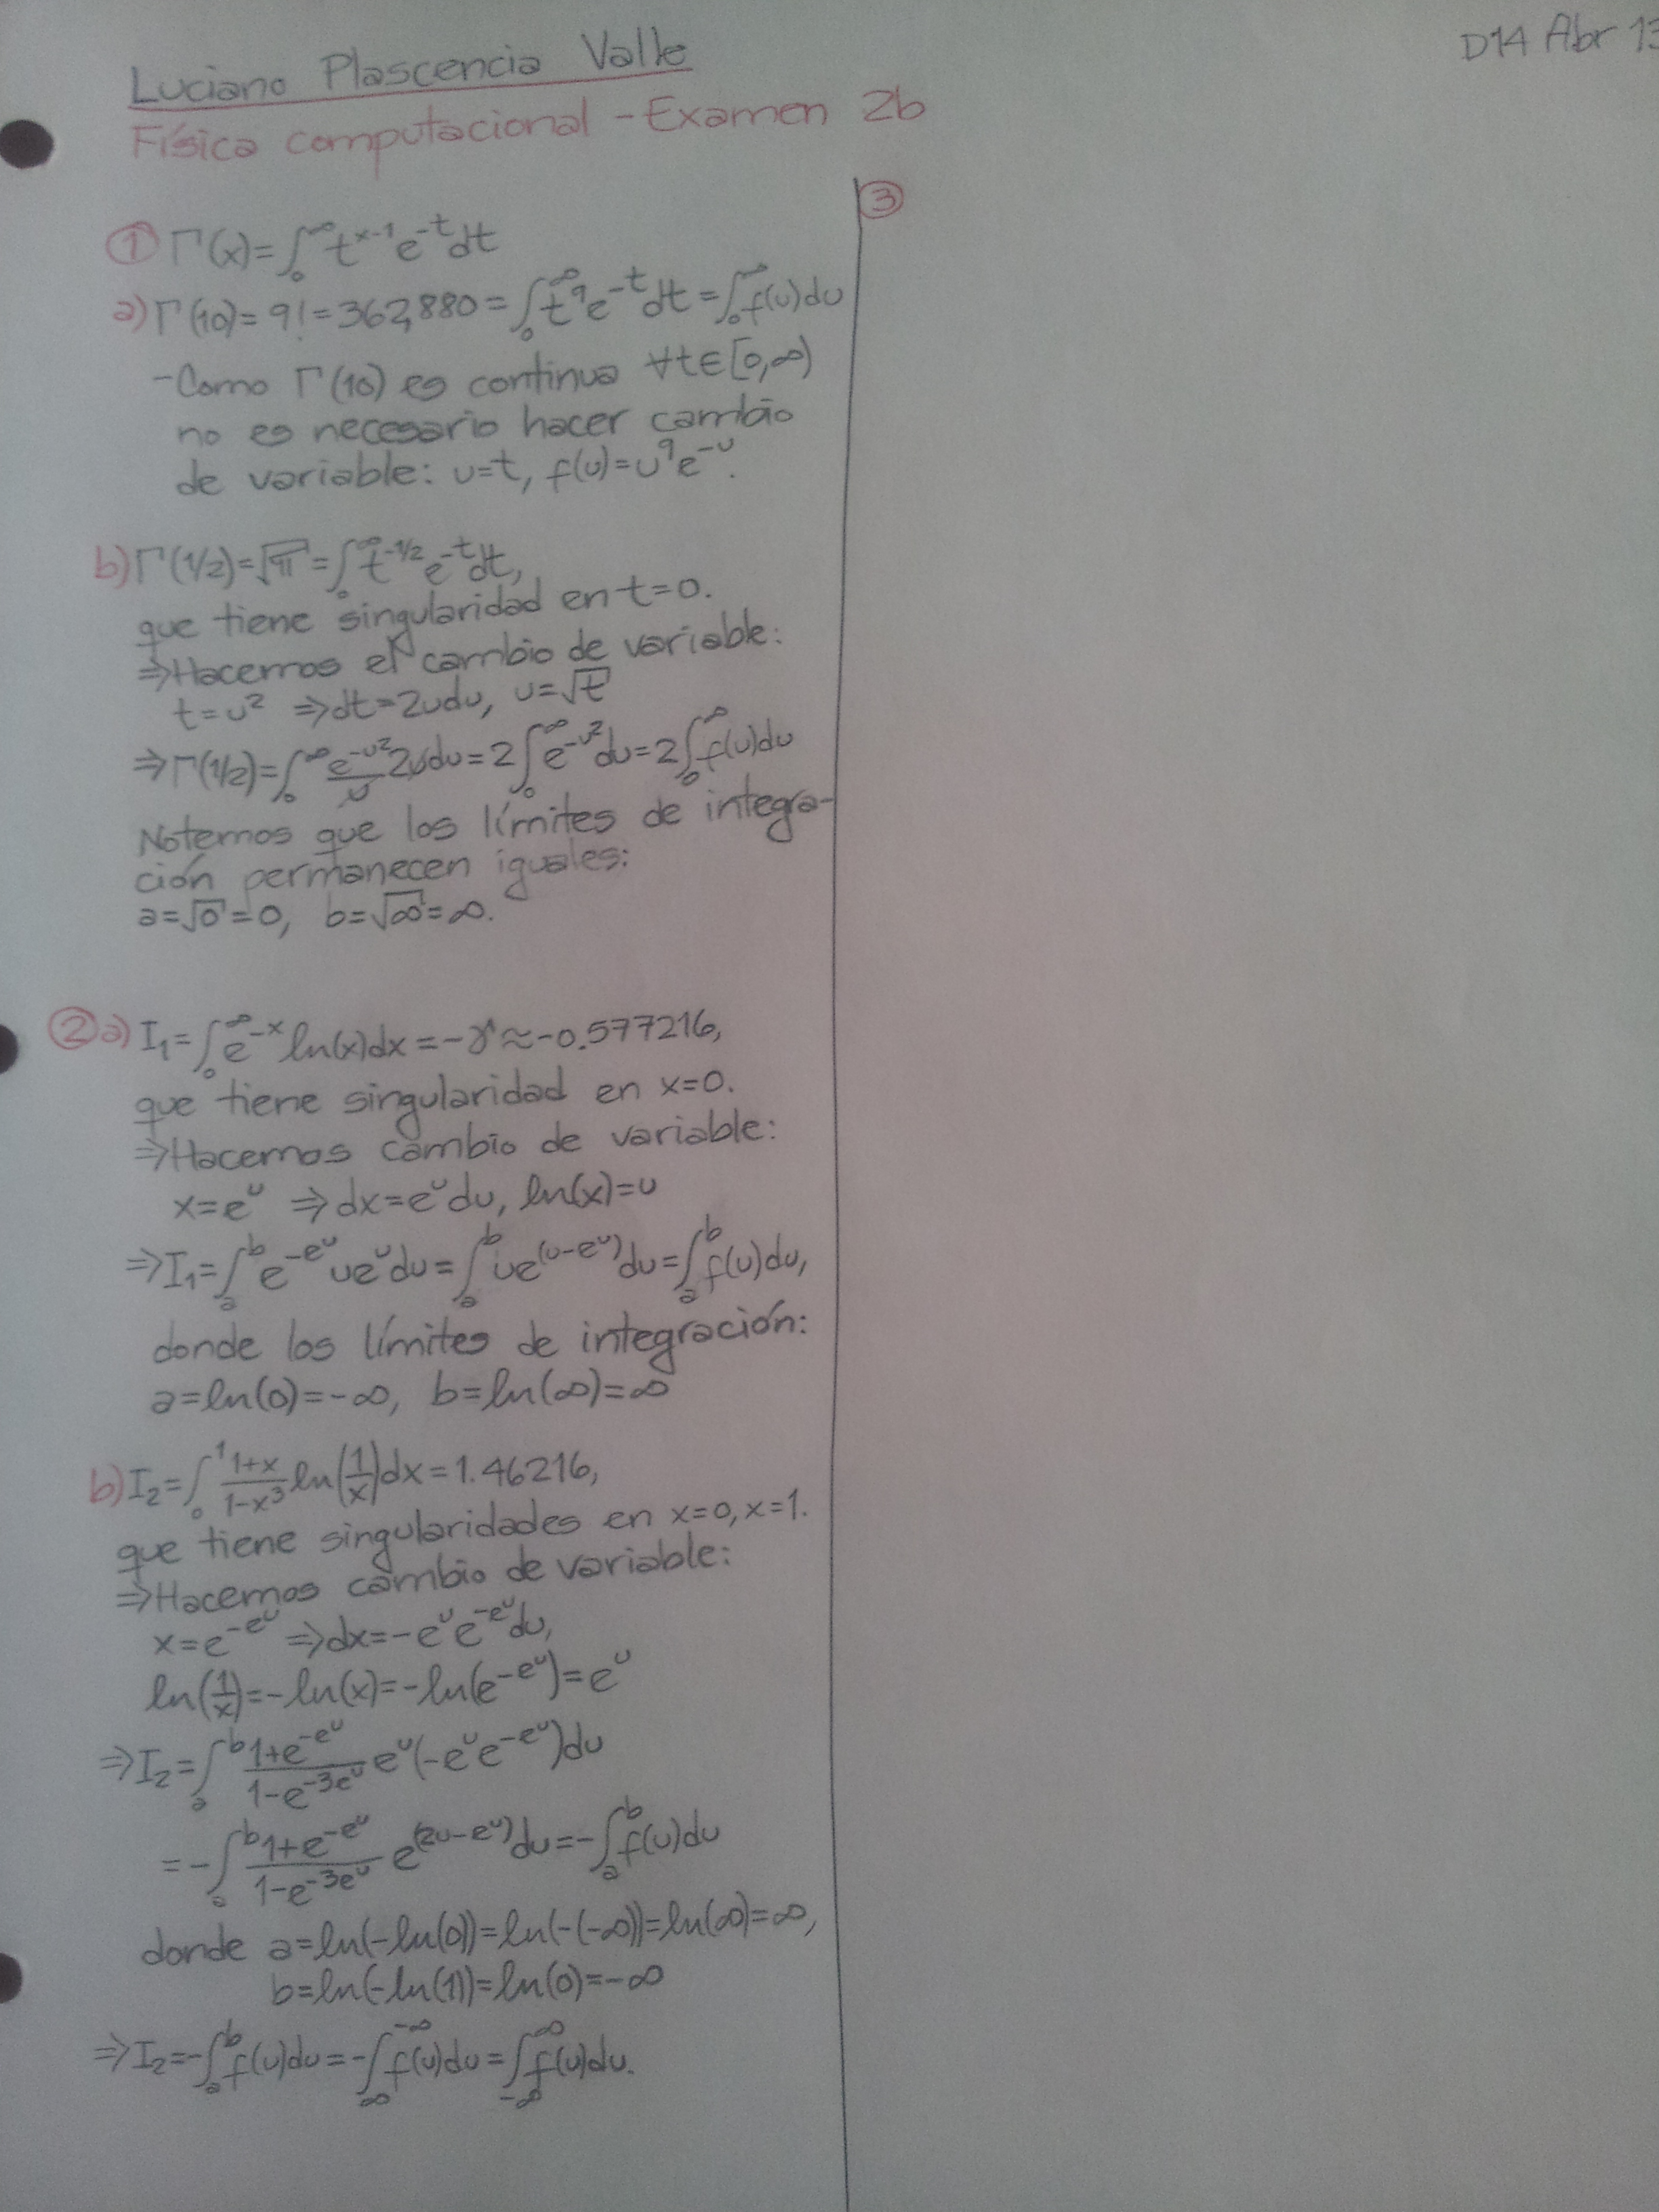 Luciano Plascencia Valle
D14 Abr 13
Física computacional - Examen 2b
① Γ(x)=∫₀^∞ t^(x-1) e^(-t) dt
a) Γ(10)=9!=362,880=∫₀^∞ t⁹e^(-t) dt=∫₀^∞ f(u)du
-Como Γ(10) es continua ∀t∈[0,∞)
no es necesario hacer cambio
de variable: u=t, f(u)=u⁹e^(-u).
b) Γ(1/2)=√π=∫₀^∞ t^(-1/2) e^(-t) dt,
que tiene singularidad en t=0.
⇒Hacemos el cambio de variable:
t=u² ⇒dt=2udu, u=√t
⇒Γ(1/2)=∫₀^∞ e^(-u²)/u 2udu=2∫₀^∞ e^(-u²)du=2∫₀^∞ f(u)du
Notemos que los límites de integra-
ción permanecen iguales:
a=√0=0, b=√∞=∞.
② a) I₁=∫₀^∞ e^(-x) ln(x)dx=-γ≈-0.577216,
que tiene singularidad en x=0.
⇒Hacemos cambio de variable:
x=e^u ⇒dx=e^u du, ln(x)=u
⇒I₁=∫ₐ^b e^(-e^u) ue^u du=∫ₐ^b ue^(u-e^u) du=∫ₐ^b f(u)du,
donde los límites de integración:
a=ln(0)=-∞, b=ln(∞)=∞
b) I₂=∫₀^1 (1+x)/(1-x³) ln(1/x)dx=1.46216,
que tiene singularidades en x=0,x=1.
⇒Hacemos cambio de variable:
x=e^(-e^u) ⇒dx=-e^u e^(-e^u) du,
ln(1/x)=-ln(x)=-ln(e^(-e^u))=e^u
⇒I₂=∫ₐ^b (1+e^(-e^u))/(1-e^(-3e^u)) e^u(-e^u e^(-e^u))du
=-∫ₐ^b (1+e^(-e^u))/(1-e^(-3e^u)) e^(2u-e^u) du=-∫ₐ^b f(u)du
donde a=ln(-ln(0))=ln(-(-∞))=ln(∞)=∞,
b=ln(-ln(1))=ln(0)=-∞
⇒I₂=-∫ₐ^b f(u)du=-∫_∞^(-∞) f(u)du=∫_(-∞)^∞ f(u)du.
③